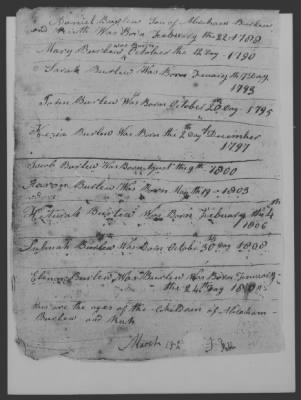 Burlew Son of Abraham Burlew
and Ruth Was Born Feberary the 22 1789
Mary Burlew Was Born October the 12 Day - 1790
Sarah Burlew Was Born January the Day
1793
Burlew Was Born October 20 Day - 1795
Kezia Burlew Was Born the 2th Day December
1797
Jacob Burlew Was Born August the 9th 1800
Aaron Burlew Was Born May th 19 - 1803
Burlew Was Born Feberary the 4th
1806
Burlew Was Born October 30th Day 1808
Burlew Was Born January
the 24th Day
the ages of the Children of Abraham
Burlew and Ruth
March